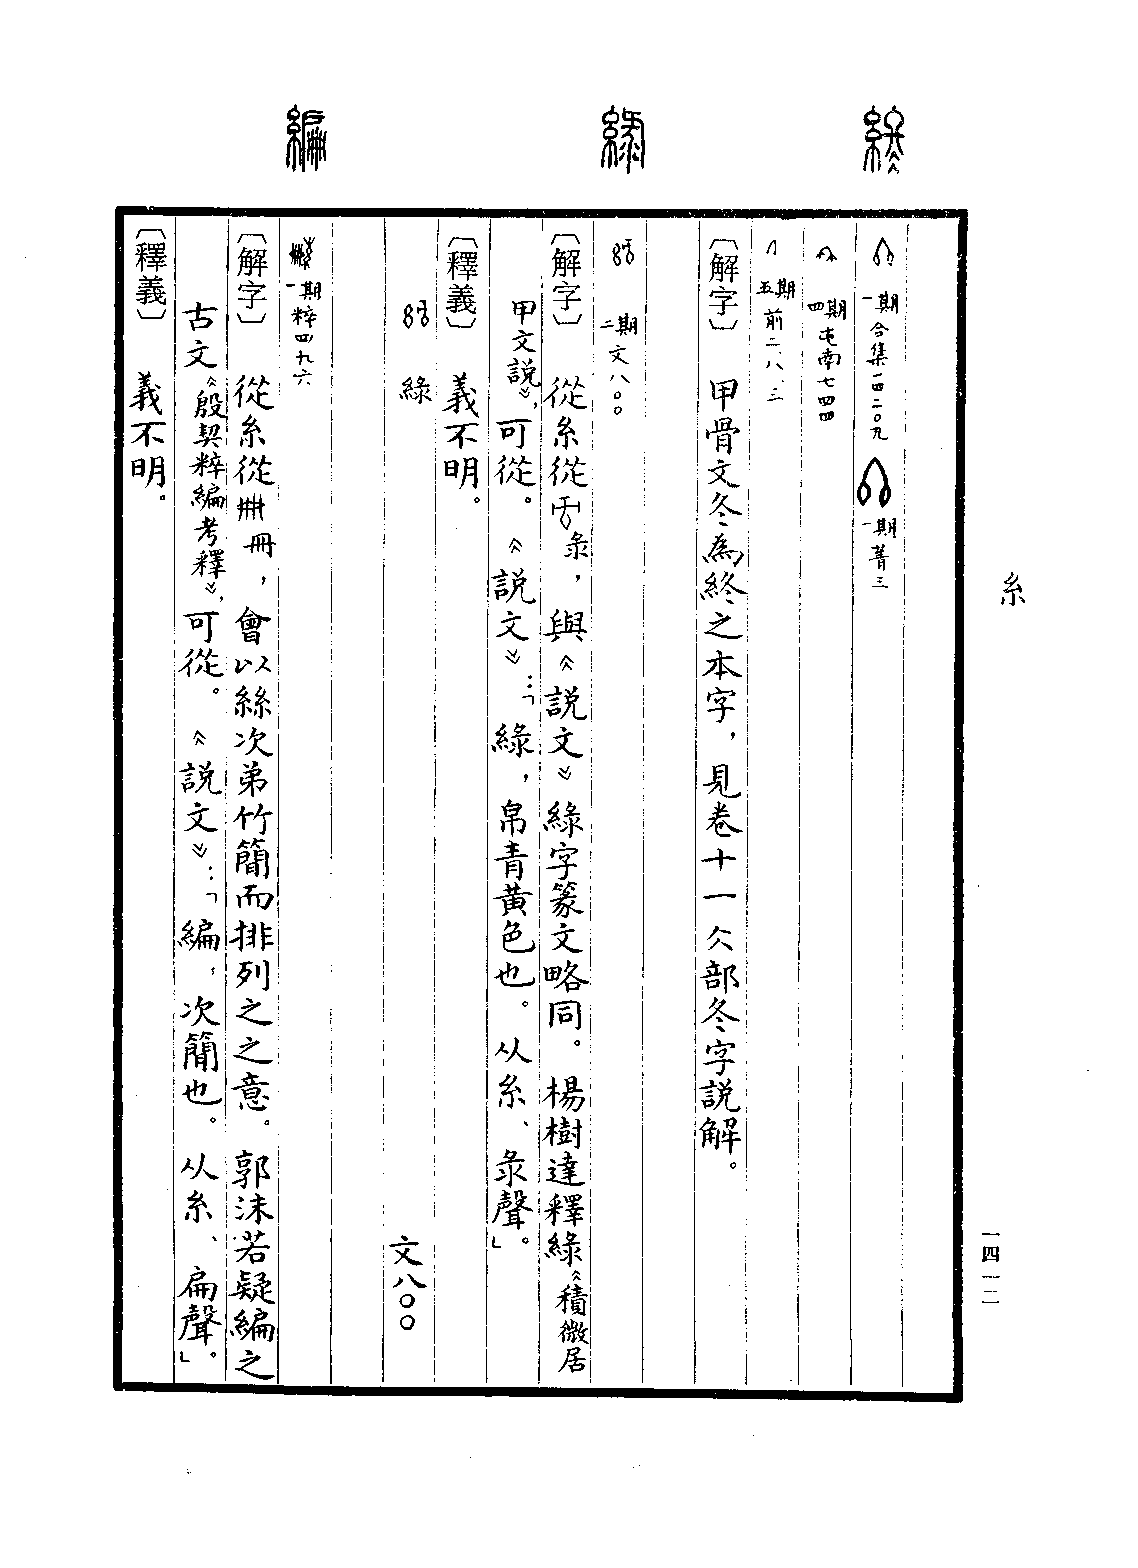 糸
一四一二
終
一期合集一四二〇九
一期菁三
四期屯南七四四
五期前二.八.三
〔解字〕甲骨文冬為終之本字，見卷十一仌部冬字說解。
綠
二期文八〇〇
〔解字〕從糸從彔，與《說文》綠字篆文略同。楊樹達釋綠《積微居
甲文說》，可從。《說文》：「綠，帛青黃色也。从糸、彔聲。」
〔釋義〕義不明。
綠 文八〇〇
編
一期粹四九六
〔解字〕從糸從冊，會以絲次弟竹簡而排列之之意。郭沫若疑編之
古文《殷契粹編考釋》，可從。《說文》：「編，次簡也。从糸、扁聲。」
〔釋義〕義不明。